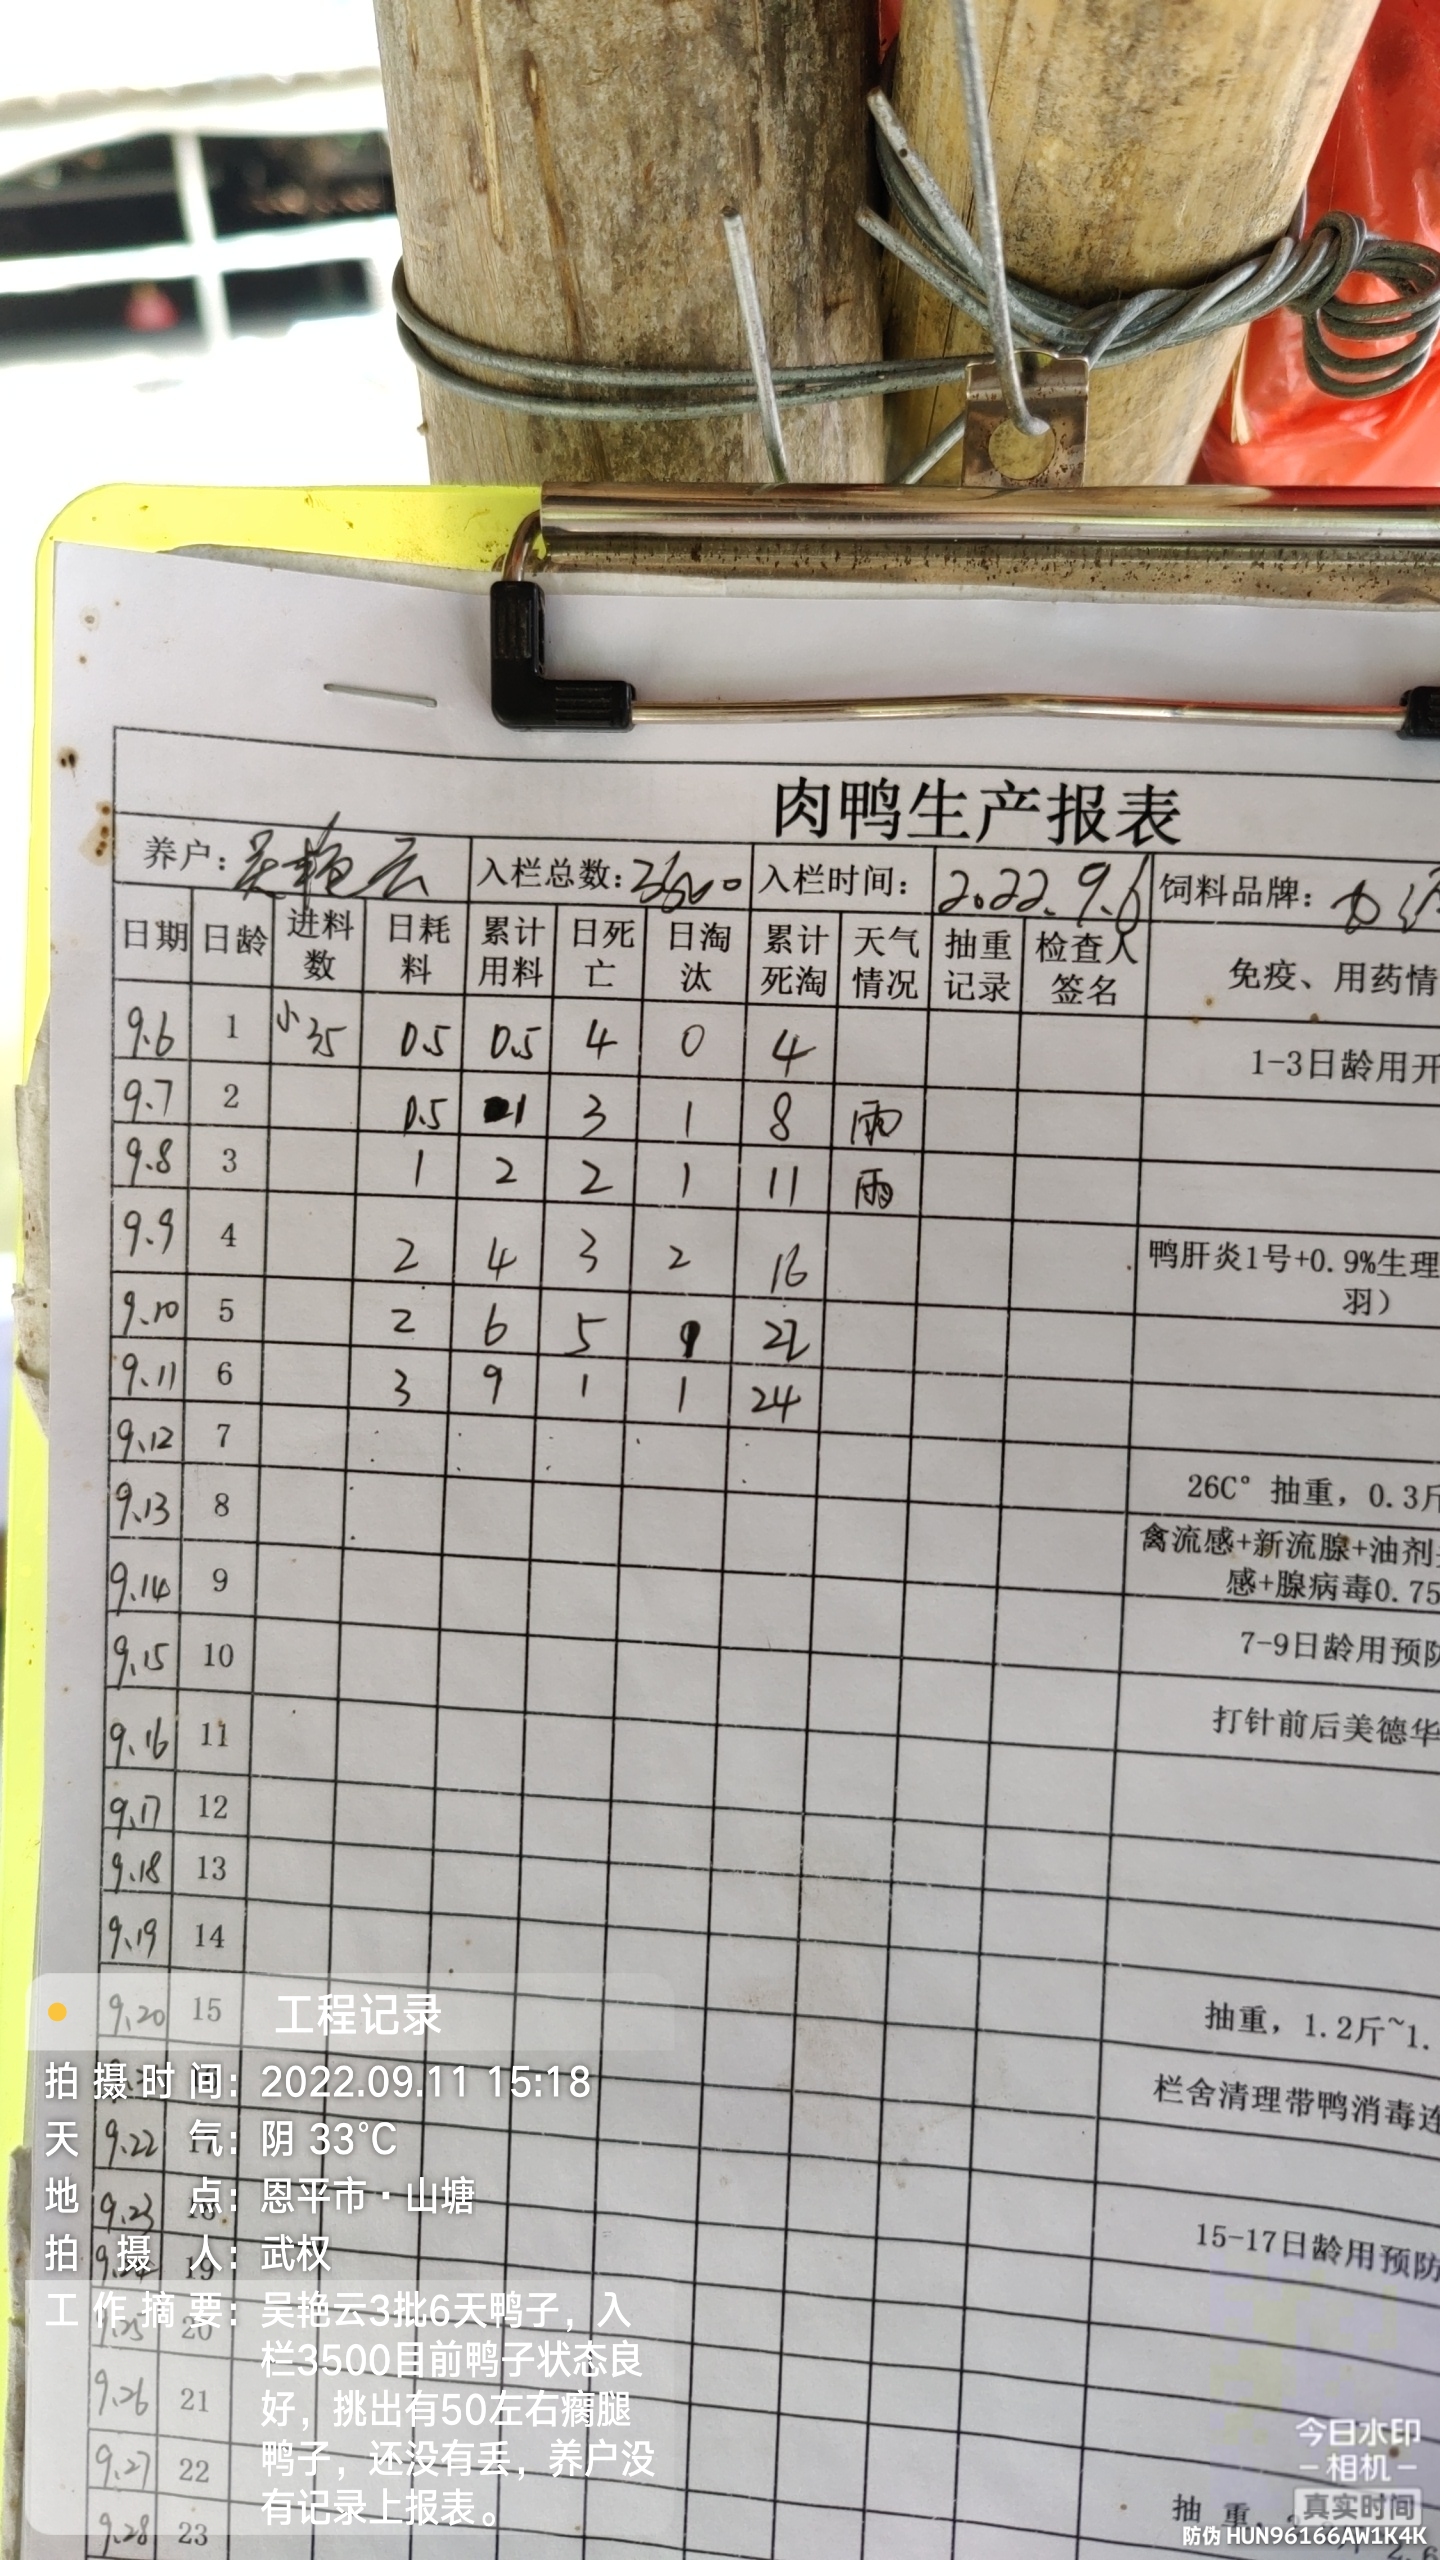 肉鸭生产报表
养户：吴艳云 入栏总数： 入栏时间：2022.9.6 饲料品牌：
日期 日龄 进料数 日耗料 累计用料 日死亡 日淘汰 累计死淘 天气情况 抽重记录 检查人签名 免疫、用药情
9.6 1 小35 0.5 0.5 4 0 4 1-3日龄用开
9.7 2 0.5 1 3 1 8 雨
9.8 3 1 2 2 1 11 雨
9.9 4 2 4 3 2 16 鸭肝炎1号+0.9%生理
羽）
9.10 5 2 6 5 1 22
9.11 6 3 9 1 1 24
9.12 7 26C° 抽重，0.3斤
9.13 8 禽流感+新流腺+油剂
感+腺病毒0.75
9.14 9
9.15 10 7-9日龄用预防
9.16 11 打针前后美德华
9.17 12
9.18 13
9.19 14
9.20 15 抽重，1.2斤~1.
栏舍清理带鸭消毒连
9.22 17
9.23 18 15-17日龄用预防
9.24 19
9.25 20
9.26 21
9.27 22
9.28 23 抽 重，
工程记录
拍摄时间：2022.09.11 15:18
天 气：阴 33℃
地 点：恩平市·山塘
拍 摄 人：武权
工作摘要：吴艳云3批6天鸭子，入
栏3500目前鸭子状态良
好，挑出有50左右瘸腿
鸭子，还没有丢，养户没
有记录上报表。
今日水印
相机
真实时间
防伪 HUN96166AW1K4K